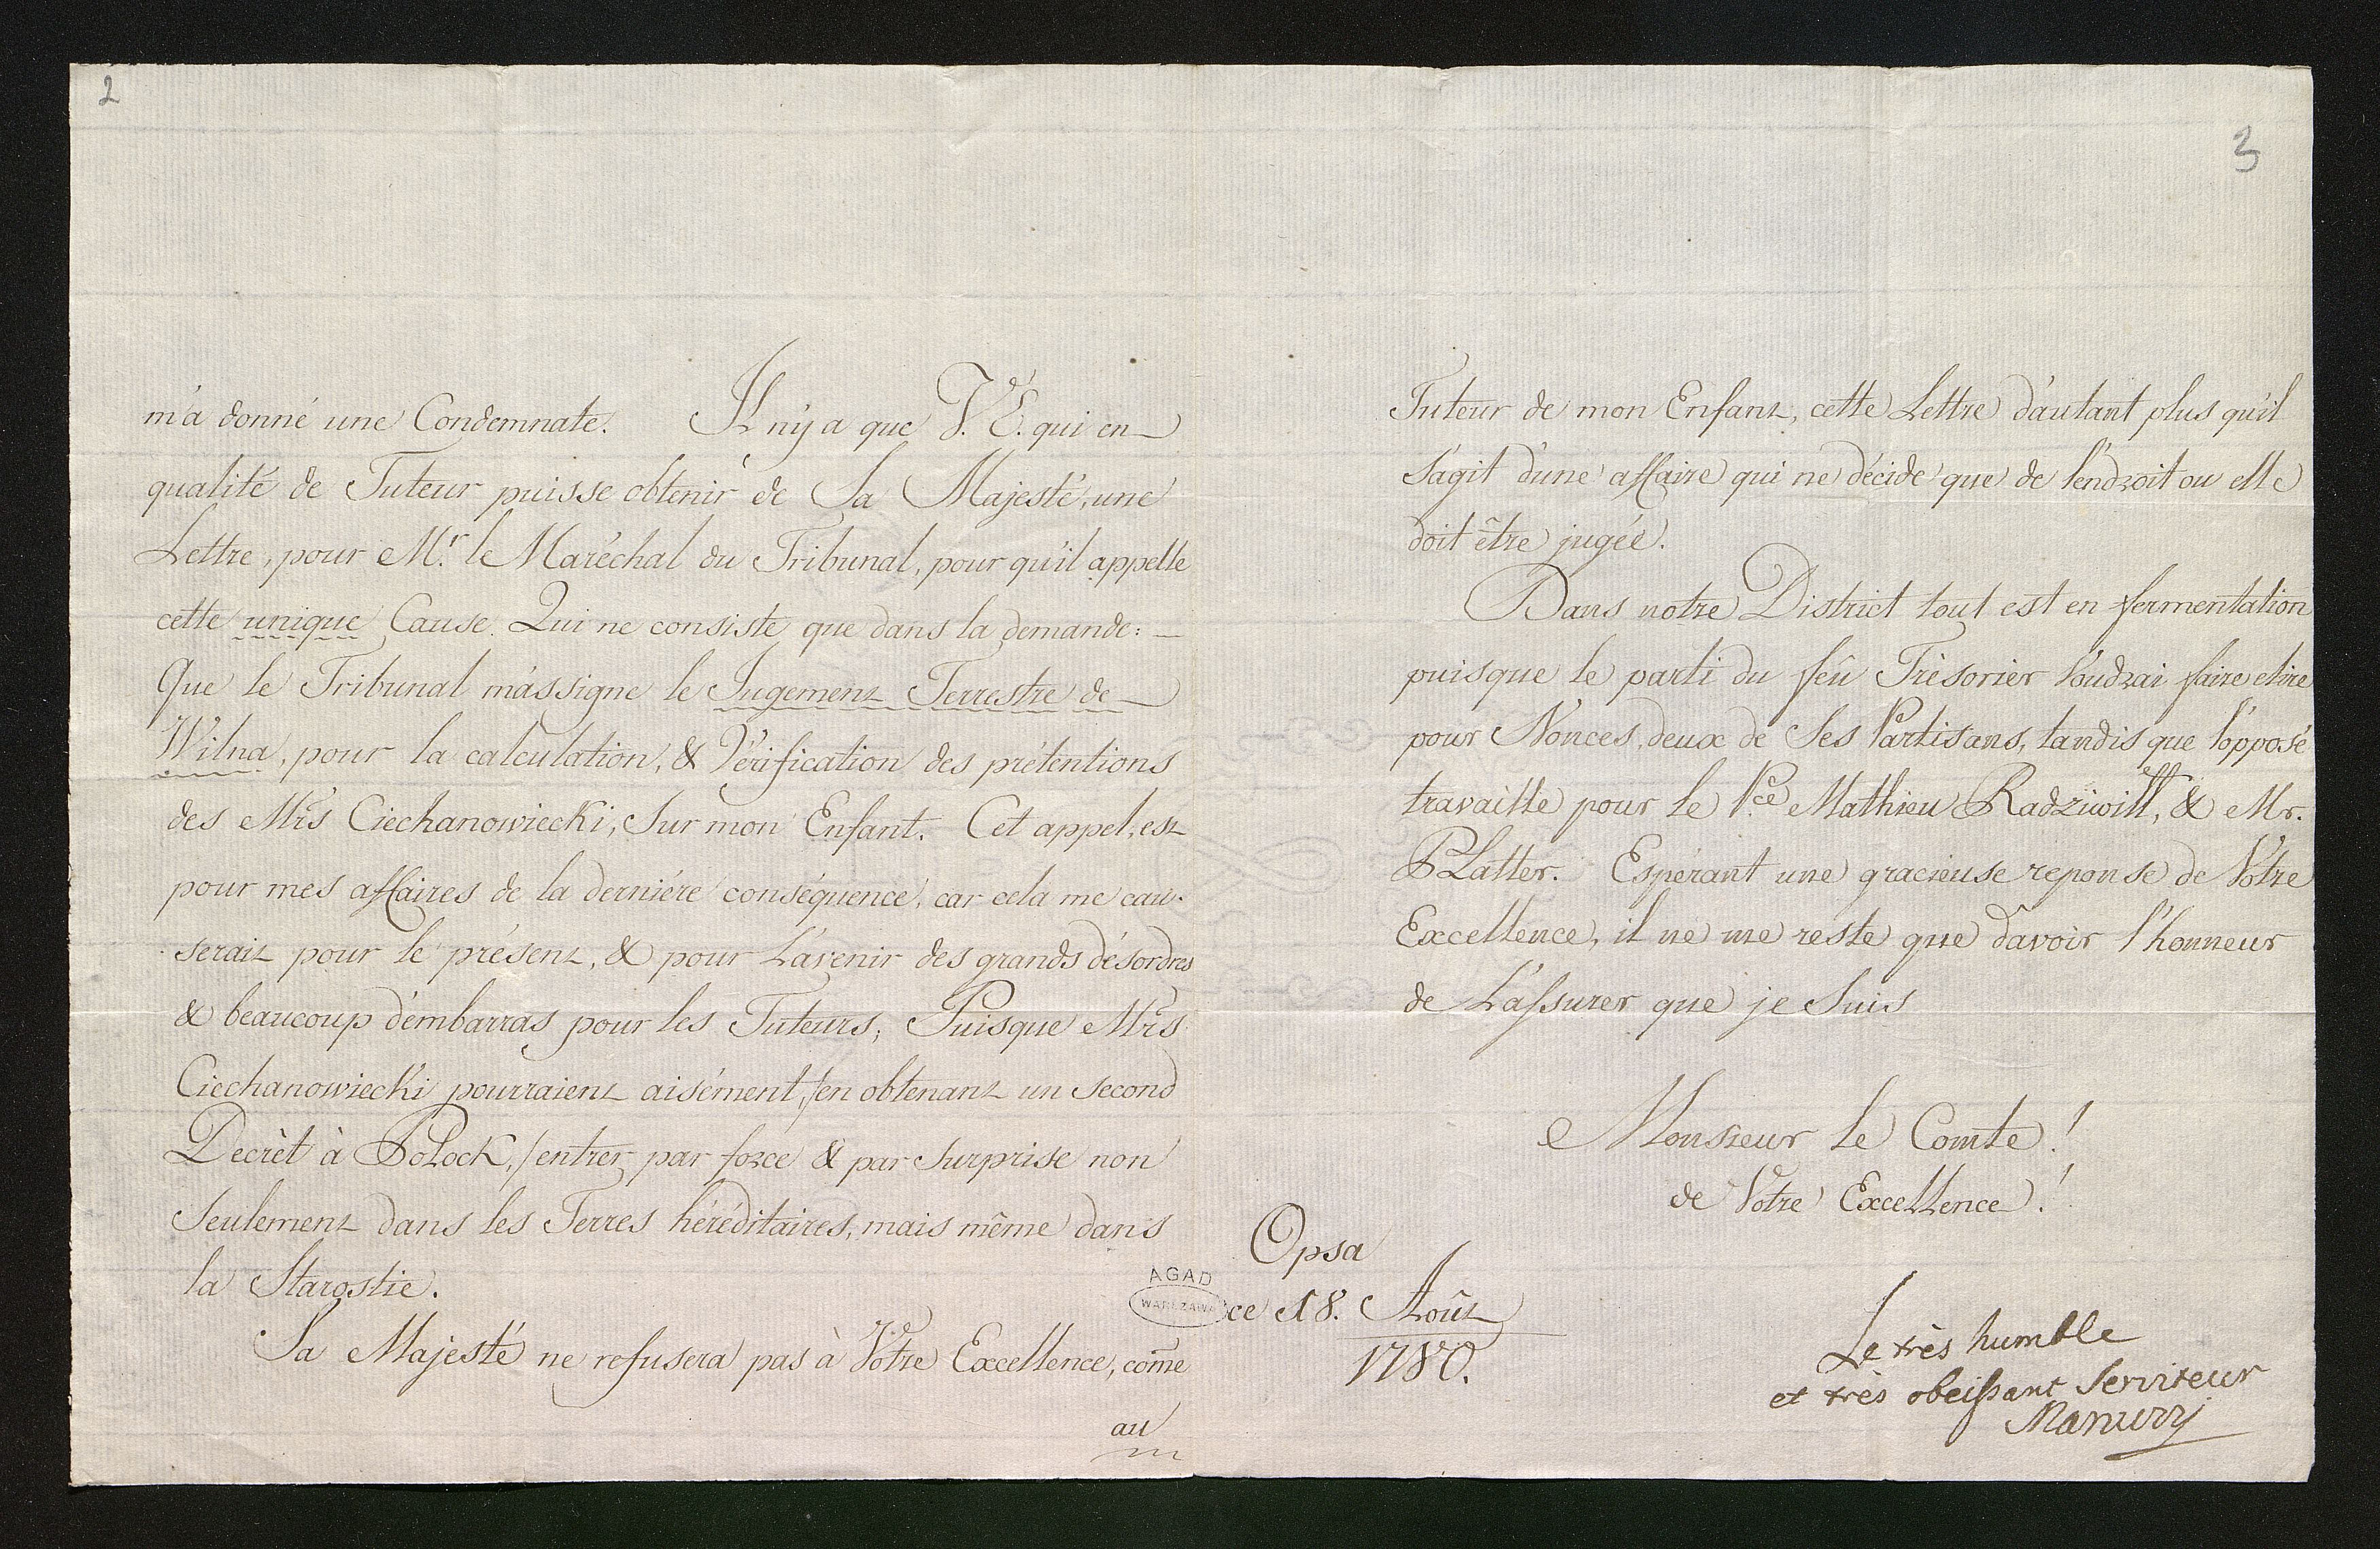 2
m'a donné une Condemnate. Il n'y a que V. E. qui en
qualité de Tuteur puisse obtenir de Sa Majesté, une
Lettre, pour Mr. le Maréchal du Tribunal, pour qu'il appelle
cette unique Cause. Qui ne consiste que dans la demande: —
Que le Tribunal m'assigne le Jugement Terrestre de
Wilna, pour la calculation, & Vérification des prétentions
des Mrs Ciechanowiecki, Sur mon Enfant. Cet appel, est
pour mes affaires de la derniére conséquence, car cela me cau-
serait pour le présent, & pour L'avenir des grands désordres
& beaucoup d'embarras pour les Tuteurs; Puisque Mrs
Ciechanowiecki pourraient aisément, /en obtenant un second
Decrèt à Polock,/ entrer par force & par Surprise non
Seulement dans les Terres héréditaires, mais même dans
la Starostie.
Sa Majesté ne refusera pas à Votre Excellence, come
au
3
Tuteur de mon Enfant, cette Lettre d'autant plus qu'il
S'agit d'une affaire qui ne décide que de l'endroit ou elle
doit être jugée.
Dans notre District tout est en fermentation
puisque le parti du feû Trèsorier Voudrai faire elire
pour Nonces, deux de Ses Partisans, tandis que l'opposé
travaille pour le Pce Mathieu Radziwill, & Mr.
PLatter. Espérant une gracieuse reponse de Votre
Excellence, il ne me reste que d'avoir l'honneur
de L'assurer que je Suis
Monsieur le Comte!
de Votre Excellence!
Opsa
ce 18. Août
1780.
AGAD
WARSZAWA
Le très humble
et très obeissant Serviteur
Manuzzy